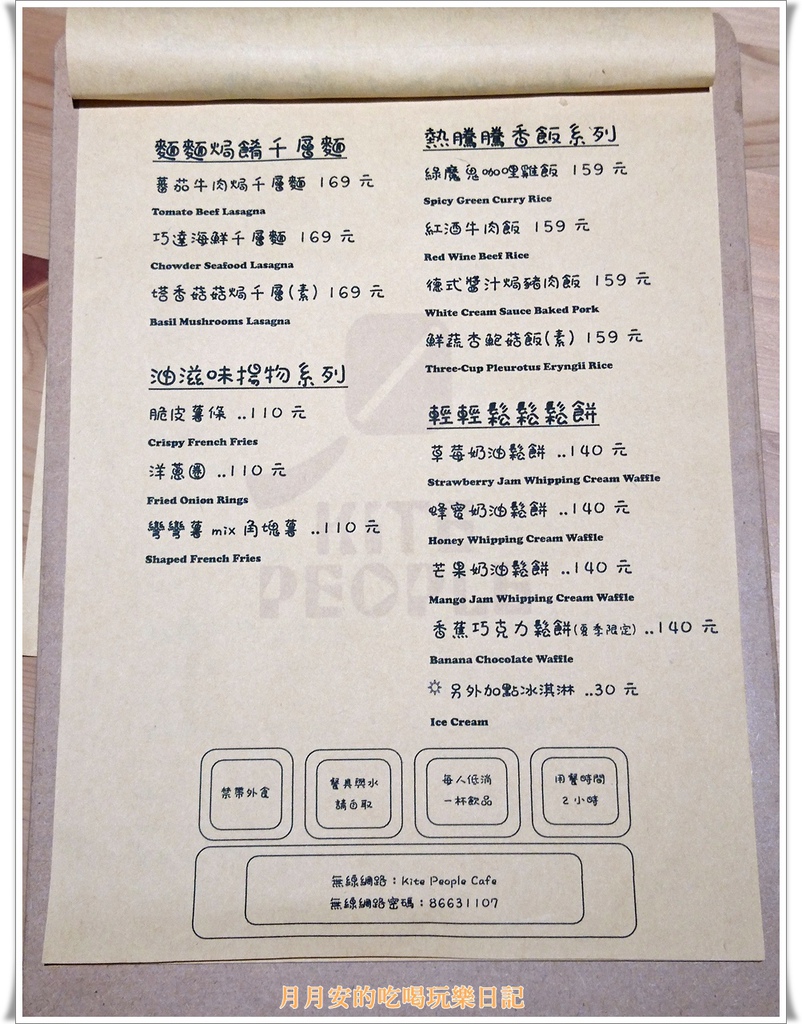 麵麵焗餚千層麵
蕃茄牛肉焗千層麵 169 元
Tomato Beef Lasagna
巧達海鮮千層麵 169 元
Chowder Seafood Lasagna
塔香菇菇焗千層(素) 169 元
Basil Mushrooms Lasagna
油滋味揚物系列
脆皮薯條 ..110 元
Crispy French Fries
洋蔥圈 ..110 元
Fried Onion Rings
彎彎薯 mix 角塊薯 ..110 元
Shaped French Fries
熱騰騰香飯系列
綠魔鬼咖哩雞飯 159 元
Spicy Green Curry Rice
紅酒牛肉飯 159 元
Red Wine Beef Rice
德式醬汁焗豬肉飯 159 元
White Cream Sauce Baked Pork
鮮蔬杏鮑菇飯(素) 159 元
Three-Cup Pleurotus Eryngii Rice
輕輕鬆鬆鬆餅
草莓奶油鬆餅 ..140 元
Strawberry Jam Whipping Cream Waffle
蜂蜜奶油鬆餅 ..140 元
Honey Whipping Cream Waffle
芒果奶油鬆餅 ..140 元
Mango Jam Whipping Cream Waffle
香蕉巧克力鬆餅(夏季限定) ..140 元
Banana Chocolate Waffle
☼ 另外加點冰淇淋 ..30 元
Ice Cream
KITE
PEOPLE
禁帶外食
餐具與水
請自取
每人低消
一杯飲品
用餐時間
2 小時
無線網路：Kite People Cafe
無線網路密碼：86631107
月月安的吃喝玩樂日記